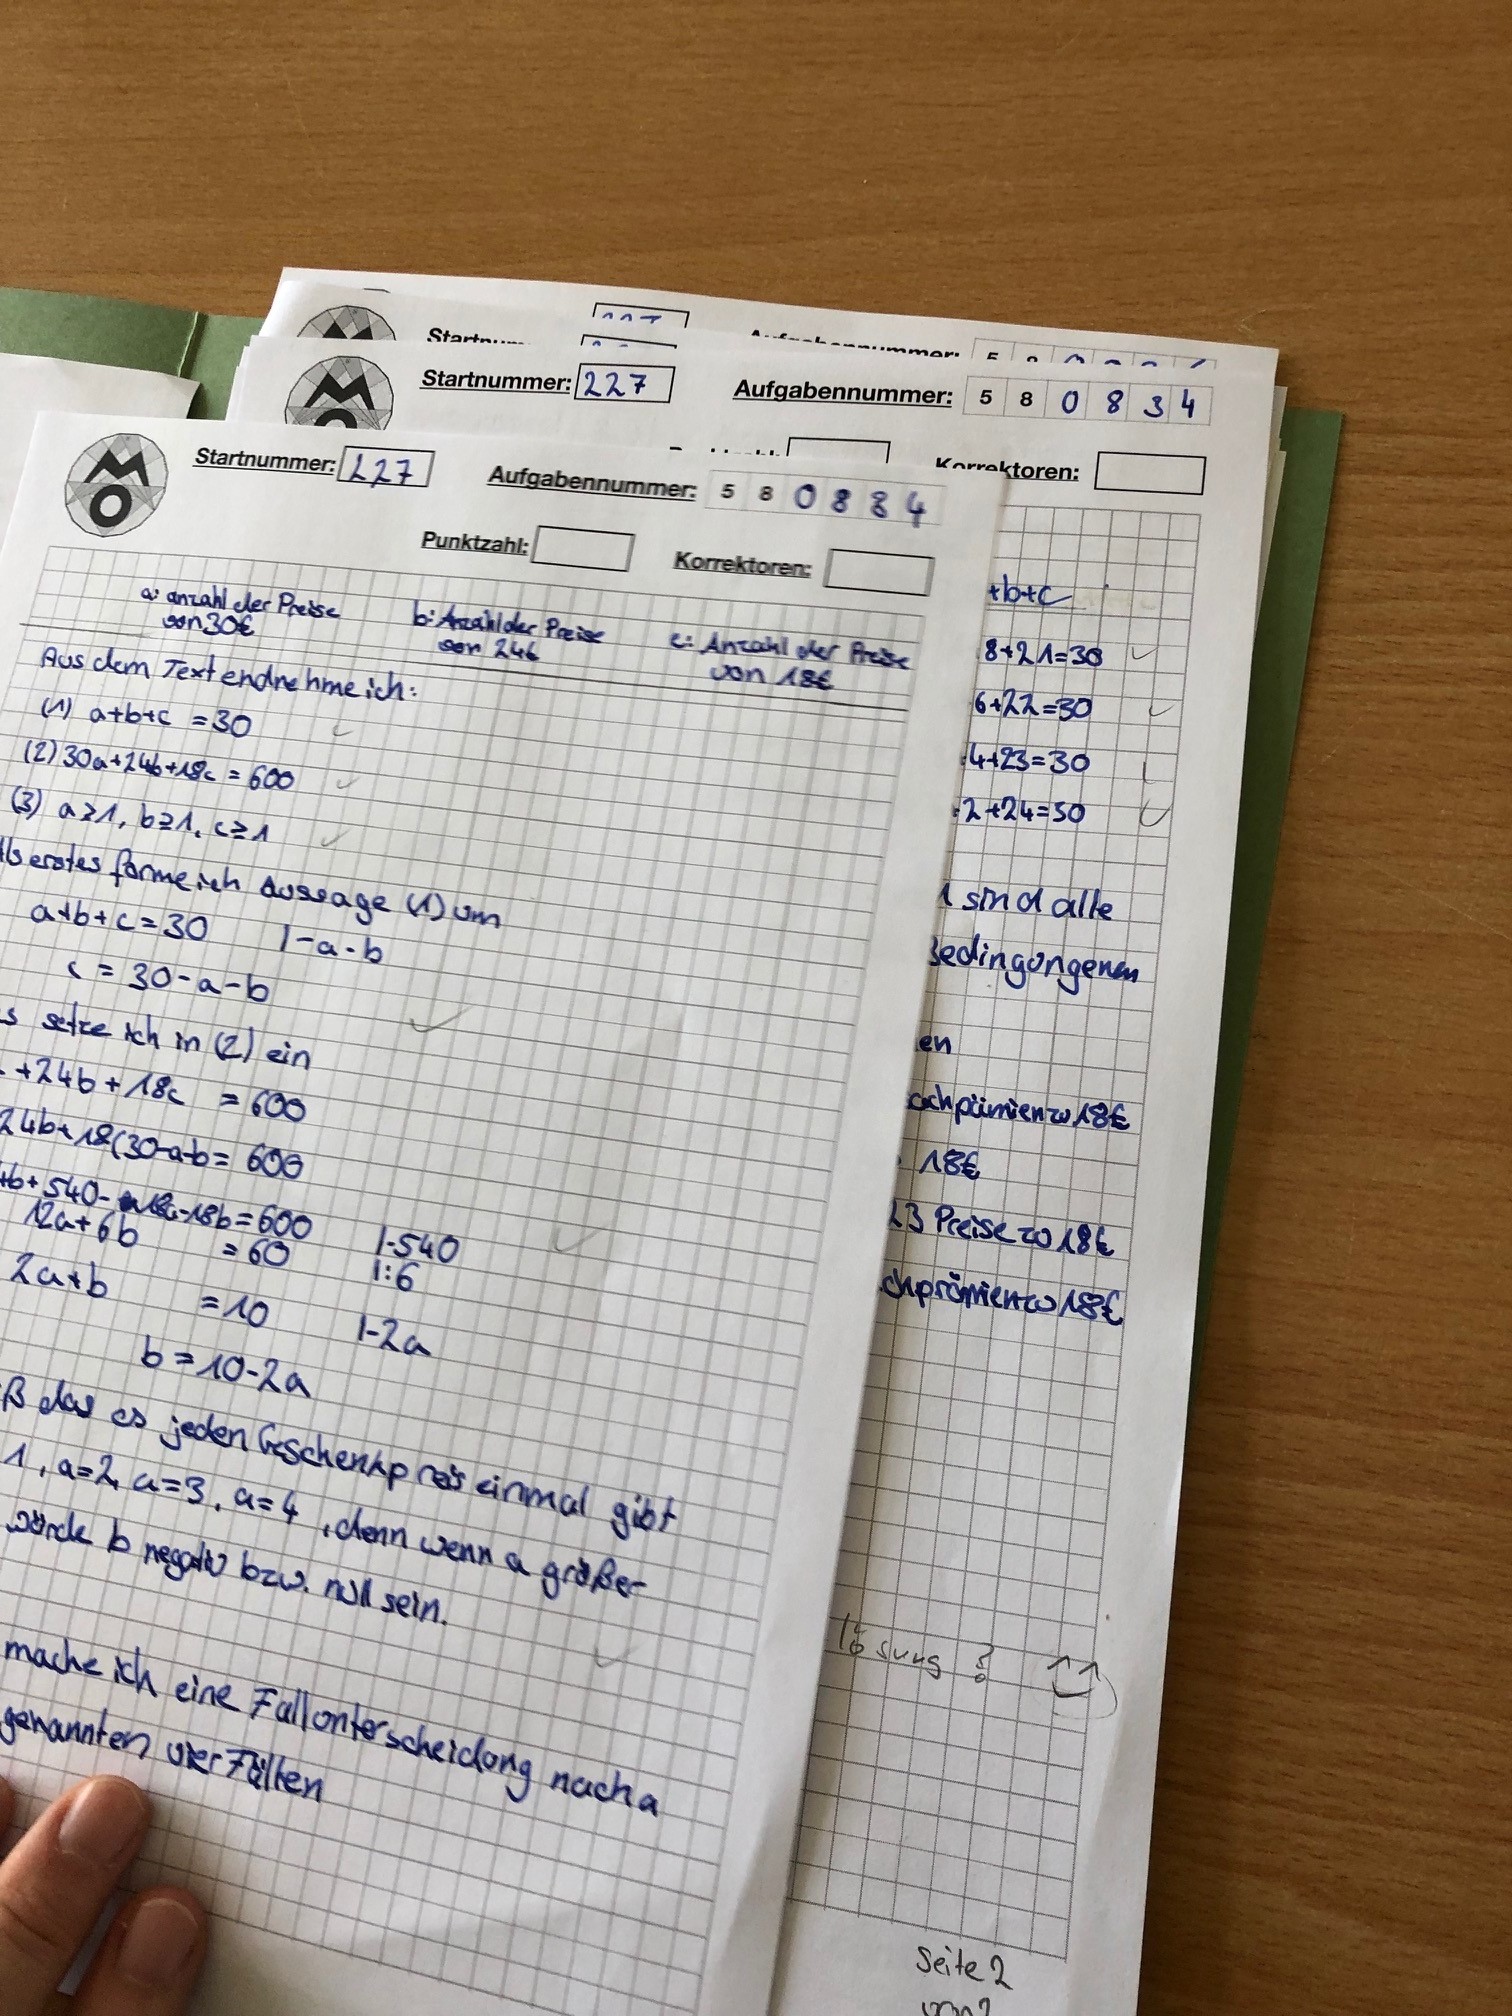 Startnummer: 227 Aufgabennummer: 5 8 0 8 3 4
Korrektoren:
MO
Startnummer: 227 Aufgabennummer: 5 8 0 8 3 4
Punktzahl: Korrektoren:
a: anzahl der Preise von 30€
b: Anzahl der Preise von 24€
c: Anzahl der Preise von 18€
Aus dem Text endnehme ich:
(1) a+b+c = 30
(2) 30a+24b+18c = 600
(3) a≥1, b≥1, c≥1
erstes forme ich Aussage (1) um
a+b+c=30 |-a-b
c = 30-a-b
setze ich in (2) ein
+24b+18c = 600
24b+18(30-a-b= 600
b+540-18a-18b=600 |-540
12a+6b = 60 |:6
2a+b = 10 |-2a
b=10-2a
ß das es jeden Geschenkpreis einmal gibt
1, a=2, a=3, a=4, denn wenn a größer
würde b negativ bzw. null sein.
mache ich eine Fallunterscheidung nach a
genannten vier Fällen
+b+c
8+21=30
6+22=30
4+23=30
+2+24=30
1 sind alle
Bedingungenen
en
18€
18€
23 Preise zu 18€
chprämien zu 18€
lösung ?
Seite 2
von 2